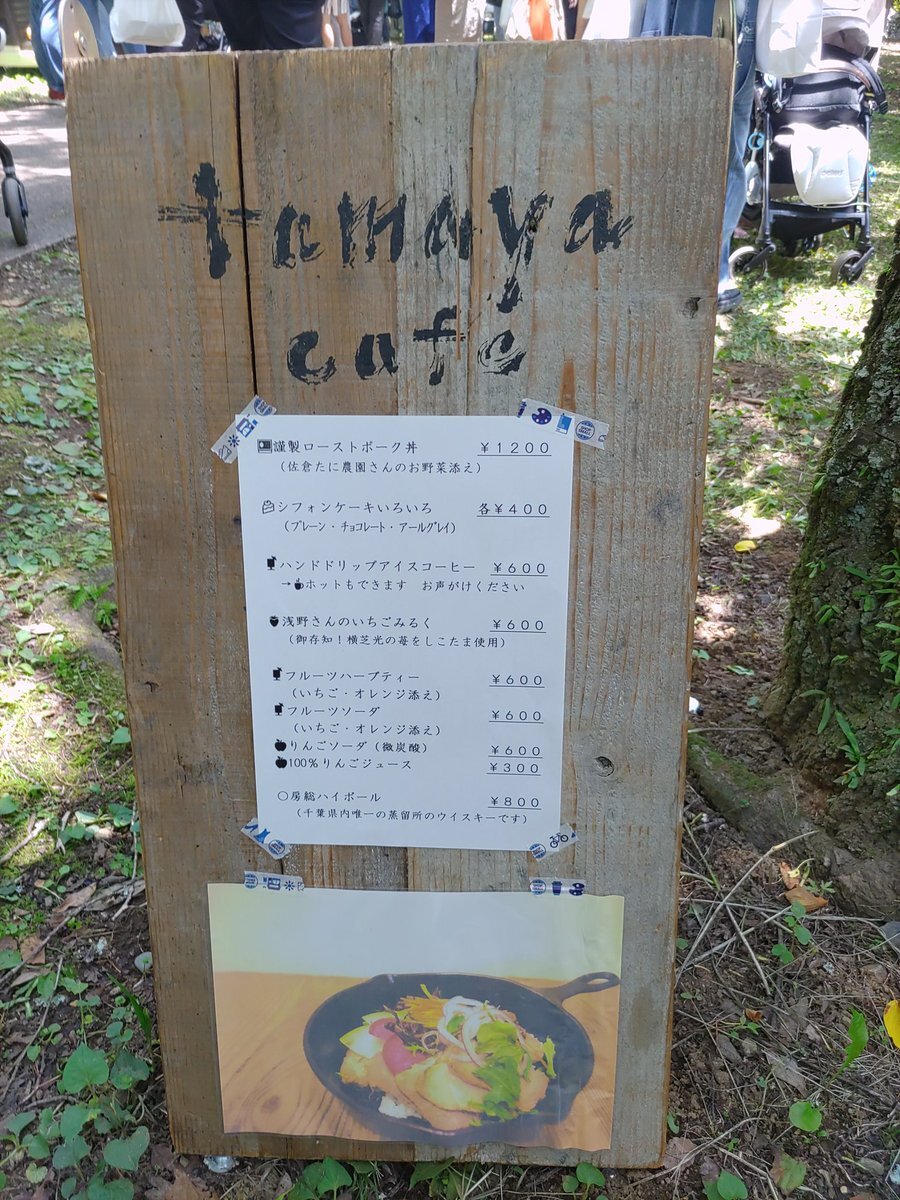 tamaya
cafe
謹製ローストポーク丼 ￥1200
（佐倉たに農園さんのお野菜添え）
シフォンケーキいろいろ 各￥400
（プレーン・チョコレート・アールグレイ）
ハンドドリップアイスコーヒー ￥600
→ホットもできます お声がけください
浅野さんのいちごみるく ￥600
（御存知！横芝光の苺をしこたま使用）
フルーツハーブティー ￥600
（いちご・オレンジ添え）
フルーツソーダ ￥600
（いちご・オレンジ添え）
りんごソーダ（微炭酸） ￥600
100％りんごジュース ￥300
〇房総ハイボール ￥800
（千葉県内唯一の蒸留所のウイスキーです）